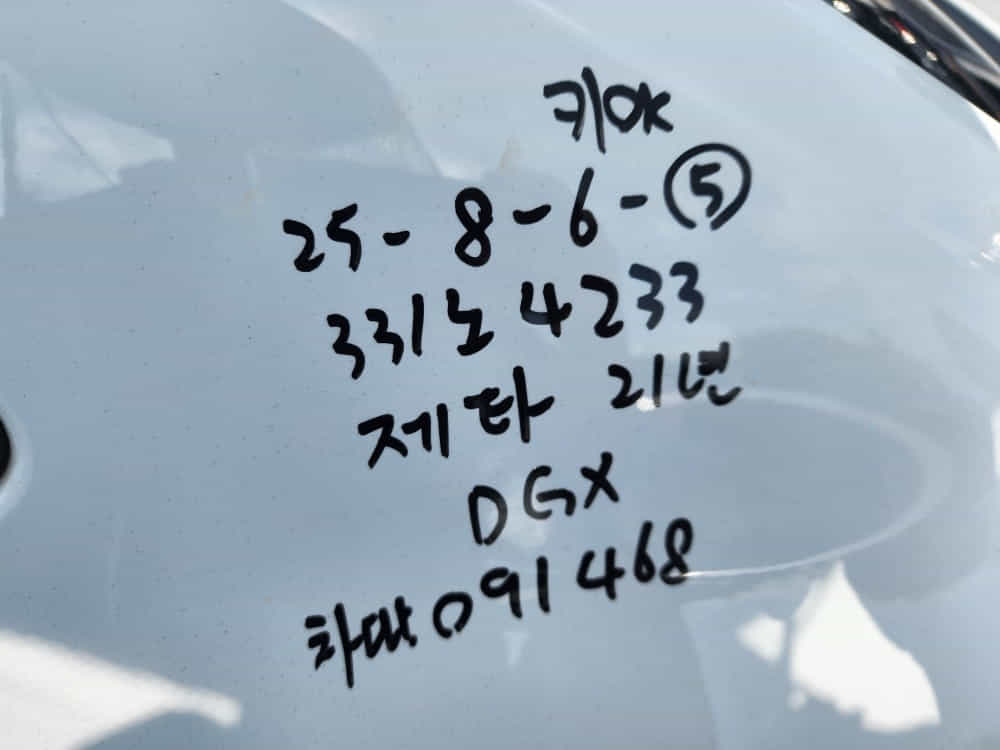 키OK
25-8-6-⑤
331노 4233
제타 21년
DGX
차대 091468